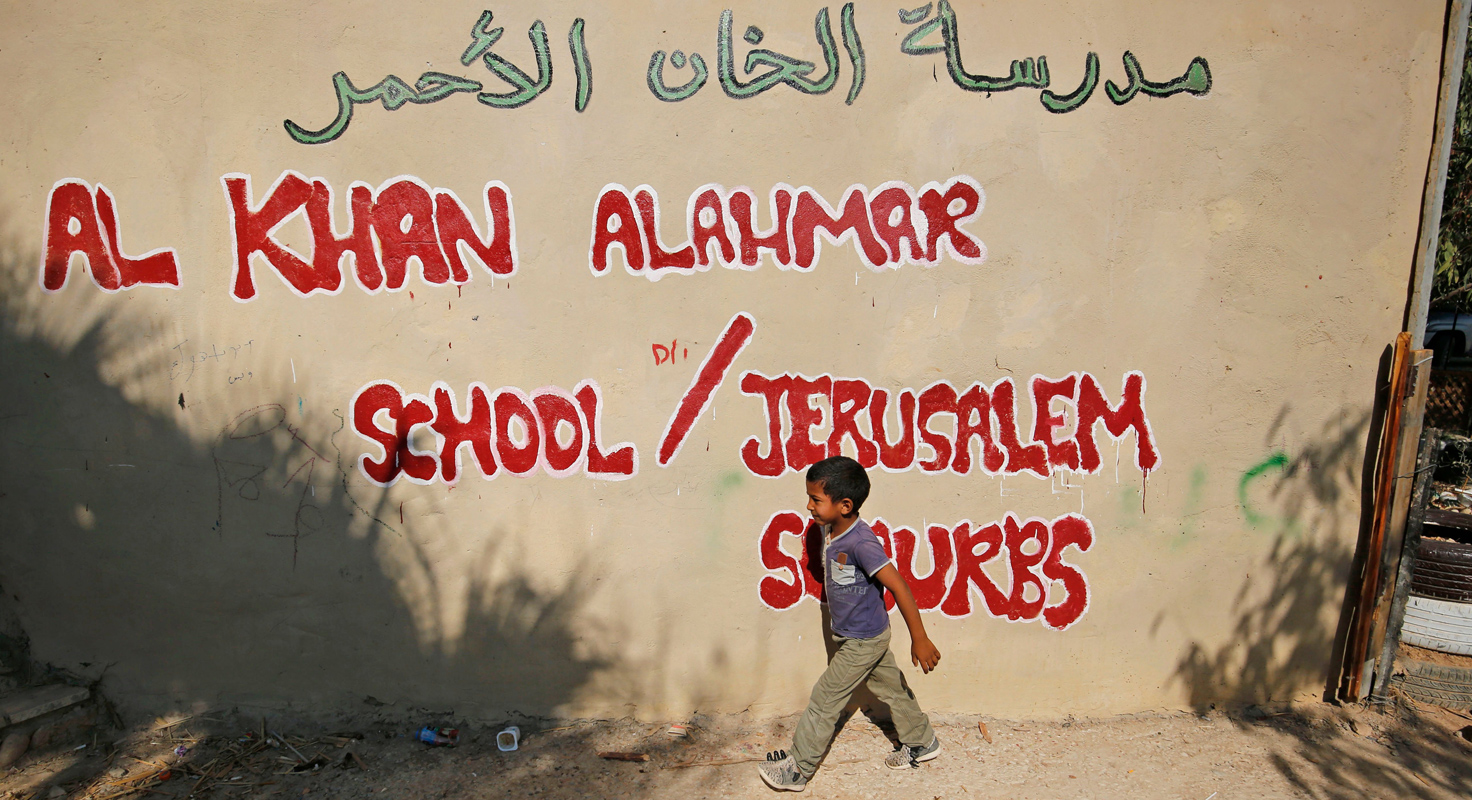 مدرسة الخان الأحمر
AL KHAN ALAHMAR
SCHOOL / JERUSALEM
SUBURBS